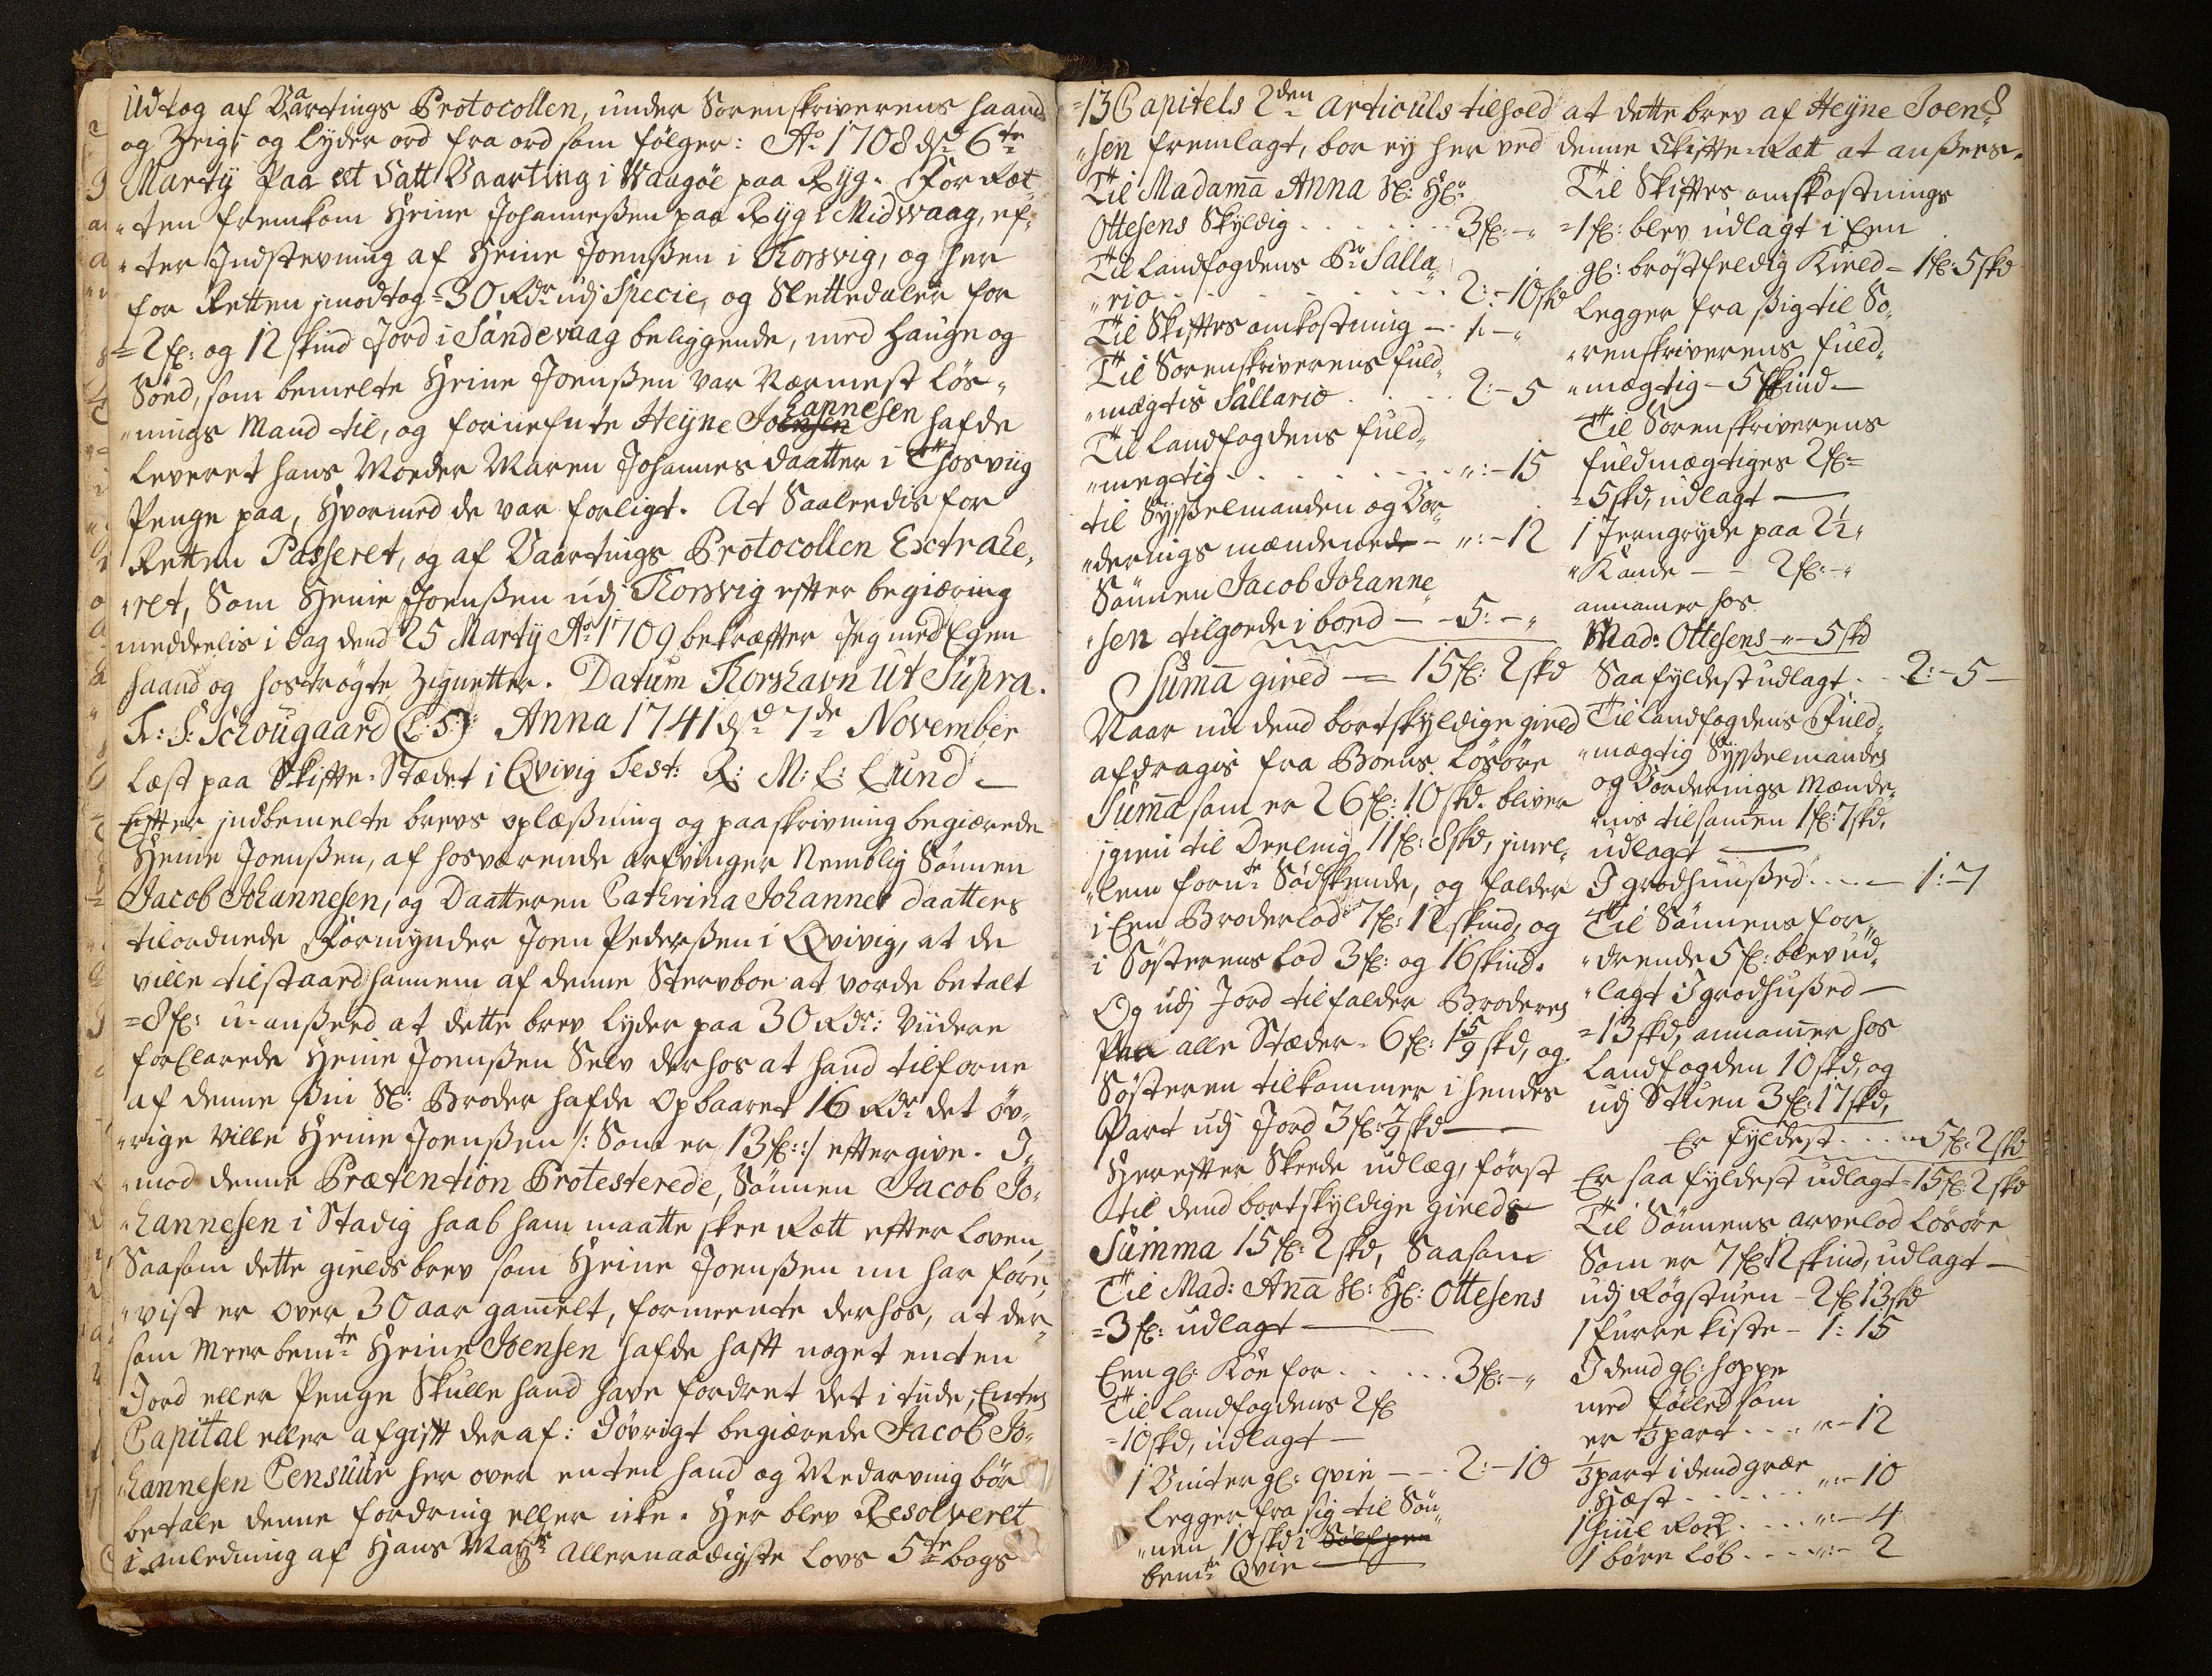 Udtog af Vaartings Protocollen, under Sorenskriverens haand
og Zeigl og lyder ord fra ord som følger: Ao 1708 dend 6te
Martij Paa et Satt Vaarting i Waagöe paa Ryg. For Ræt„
„ten fremkom Heine Johanneßen paa Ryg i Midwaag, ef„
„ter Indstevning af Heine Joenßen i Korsvig, og her
for Retten imodtog = 30 Rdr udj Specie, og Slettedaler for
= 2 fl: og 12 skind Jord i Sandevaag beliggende, med Hauge og
Sönd, som bemelte Heine Joenßen var Nærmest lös„
„nings Mand til, og fornefnte Heyne Johannesen hafde
leveret hans Moeder Maren Johannesdaatter i Thorsviig
Penge paa, Hvormed de var forligt. At Saaleedis for
Retten Passeret, og af Vaartings Protocollen Extrahe„
„ret, Som Heine Joenßen udj Korsvig efter begiæring
meddeelis i Dag dend 25 Martij Ao 1709 bekræfter Jeg med Egen
haand og hoströgte Zignetter. Datum Thorshavn Ut Supra.
F: S: Schougaard (L:S:) Anna 1741 dend 7de November
læst paa Skifte-Stædet i Qvivig Test: R: M: L: Lund
Efter indbemelte brevs oplæßning og paaskrivning begiærede
Heine Joenßen, af hosværende arfvinger Nemblig Sönnen
Jacob Johannesen, og Daatteren Cathrina Johannes daatters
tilordnede Formynder Joen Pederßen i Qvivig, at de
ville tilstaa hannem af denne Stervboe at vorde betalt
= 8 fl: uanßeed at dette brev lyder paa 30 Rdr: Viidere
forClarede Heine Joenßen Selv derhos at hand tilforne
af denne ßin Sl: Broder hafde Opbaaret 16 Rdr det öv„
„rige Ville Heine Joenßen /: Som er 13 fl: :/ eftergive. I„
„mod denne Prætention Protesterede, Sönnen Jacob Jo„
„hannesen i Stadig haab ham maatte skee Rætt efter loven,
Saasom dette gieldsbrev som Heine Joenßen nu har fore„
„vist er over 30 aar gamelt, formeente derhos, at der„
som Meerbemte Heine Joensen hafde haft noget enten
Jord eller Penge Skulle hand have fordret det i tiide, Enten
Capital eller afgift deraf: Iövrigt begiærede Jacob Jo„
„hannesen Censuur her over enten hand og Medarving bör
betale denne fordring eller icke. Her blev Resolveret
i anledning af Hans Mayts Allernaadigste Lovs 5te bogs
8
= 13 Capitels 2den Articuls tilhold at dette brev af Heyne Joen„
„sen fremlagt, bor ey her ved denne Skifte-Rætt at anßees.
Til Madama Anna Sl: Hr
Ottesens Skyldig . . . . . . 3 fl: - „
Til Landfogdens Sr: Salla„
„rio . . . . . . . . 2: - 10 skd
Til Skiftes omkostning — 1: - „
Til Sorenskriverens fuld„
„mægtis Sallario . . . . 2: - 5
Til Landfogdens fuld„
„megtig . . . . . . . „: - 15
til Sysßelmanden og Vor„
„derings mændene — „: - 12
Sönnen Jacob Johanne„
„sen tilgode i boed — 5: - „
Suma gield — 15 fl: 2 skd
Naar nu dend bortskyldige gield
afdragis fra Boens lösöre
Suma som er 26 fl: 10 skd. bliver
igien til Deeling 11 fl: 8 skd, imel„
„lem fornte Södskende, og falder
i Een Broderlod 7 fl: 12 skind, og
i Söstterens lod 3 fl: og 16 skind.
Og udj Jord tilfalder Broderen
Paa alle Stæder - 6 fl: 1 5/9 skd, og
Söstteren tilkommer i hendes
Part udj Jord 3 fl: 7/9 skd —
Herefter Skeede udlæg, först
til dend bortskyldige gields
Summa 15 fl: 2 skd, Saasom
Til Mad: Ana Sl: Hl: Ottesens
= 3 fl: udlagt —
Een gl: Köe for . . . . . 3 fl: - „
Til Landfogdens 2 fl
= 10 skd, udlagt —
1 Vinter gl: qvie — 2: - 10
Legger fra sig til Sön„
„nen 10 skd i Sölfpen
bemte Qvie —
Til Skiftes omkostnings
= 1 fl: blev udlagt i Een
gl: bröstfeldig Kield = 1 fl: 5 skd
Legger fra ßig til So„
„renskriverens fuld„
„mægtig - 5 skind —
Til Sorenskriverens
fuldmægtiges 2 fl:
= 5 skd, udlagt —
1 Jerngryde paa 2 1/2
„Kande — 2 fl: - „
annamer hos
Mad: Ottesens - „ - 5 skd
Saa fyldest udlagt . . 2: - 5 —
Til Landfogdens Fuld„
„mægtig Sysßelmandes
og Vorderings Mænde„
„nis tilsamen 1 fl: 7 skd,
udlagt —
I grodhuußed . . . — 1: - 7
Til Sönnens for„
„drende 5 fl: blev ud„
„lagt I grodhußed —
= 13 skd, annamer hos
Landfogden 10 skd, og
udj Stuen 3 fl: 17 skd,
Er fyldest . . . 5 fl: 2 skd
Er saa fyldest udlagt = 15 fl: 2 skd
Til Sönnens arvelod lösöre
Som er 7 fl: 12 skind, udlagt —
udj Rögstuen - 2 fl: 13 skd
1 furre kiste - 1: 15
I dend gl: hoppe
med föllet som
er 1/3 part . . . „ - 12
1/3 part i dend græe
Hæst . . . . . . „: - 10
1 hiul Rock . . . „: - 4
1 böre löb . . . „: - 2